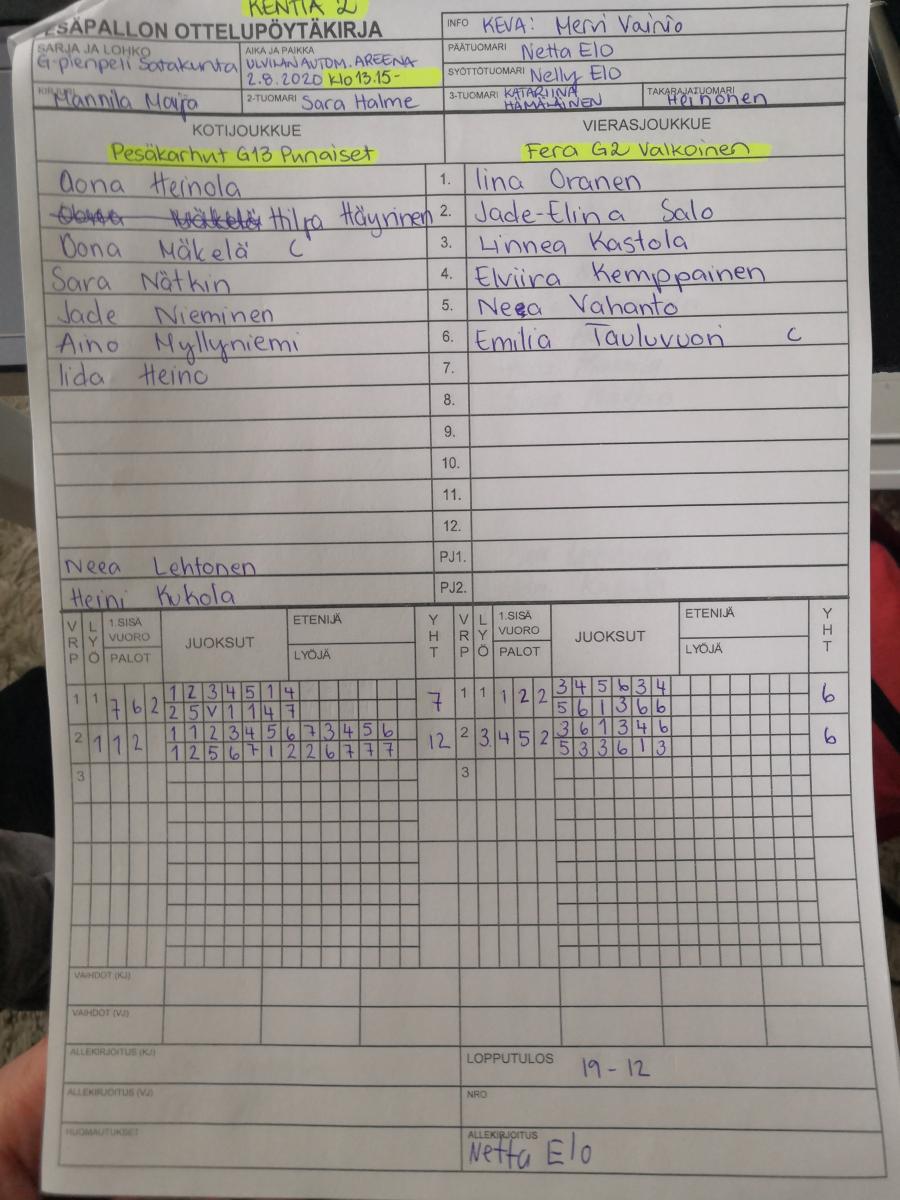 KENTTÄ 2
PESÄPALLON OTTELUPÖYTÄKIRJA
INFO KEVA: Mervi Vainio
SARJA JA LOHKO
G-pienpeli Satakunta
AIKA JA PAIKKA
ULVILAN AUTOM. AREENA
2.8.2020 klo 13.15-
PÄÄTUOMARI Netta Elo
SYÖTTÖTUOMARI Nelly Elo
KIRJURI Mannila Maija
2-TUOMARI Sara Halme
3-TUOMARI KATARIINA HÄMÄLÄINEN
TAKARAJATUOMARI Heinonen
KOTIJOUKKUE
Pesäkarhut G13 Punaiset
VIERASJOUKKUE
Fera G2 Valkoinen
Oona Heinola 1. Iina Oranen
Hilpa Häyrinen 2. Jade-Elina Salo
Oona Mäkelä C 3. Linnea Kastola
Sara Nätkin 4. Elviira Kemppainen
Jade Nieminen 5. Neea Vahanto
Aino Myllyniemi 6. Emilia Tauluvuori C
Iida Heino 7.
8.
9.
10.
11.
12.
Neea Lehtonen PJ1.
Heini Kukola PJ2.
VRP LYÖ 1.SISÄ VUORO PALOT JUOKSUT ETENIJÄ LYÖJÄ YHT VRP LYÖ 1.SISÄ VUORO PALOT JUOKSUT ETENIJÄ LYÖJÄ YHT
1 1 7 6 2 1 2 3 4 5 1 4 7 1 1 1 2 2 3 4 5 6 3 4 6
2 5 V 1 1 4 7 5 6 1 3 6 6
2 1 1 2 1 1 2 3 4 5 6 7 3 4 5 6 12 2 3 4 5 2 3 6 1 3 4 6 6
1 2 5 6 7 1 2 2 6 7 7 7 5 3 3 6 1 3
3 3
VAIHDOT (KJ)
VAIHDOT (VJ)
ALLEKIRJOITUS (KJ)
LOPPUTULOS 19-12
ALLEKIRJOITUS (VJ)
NRO
HUOMAUTUKSET
ALLEKIRJOITUS
Netta Elo